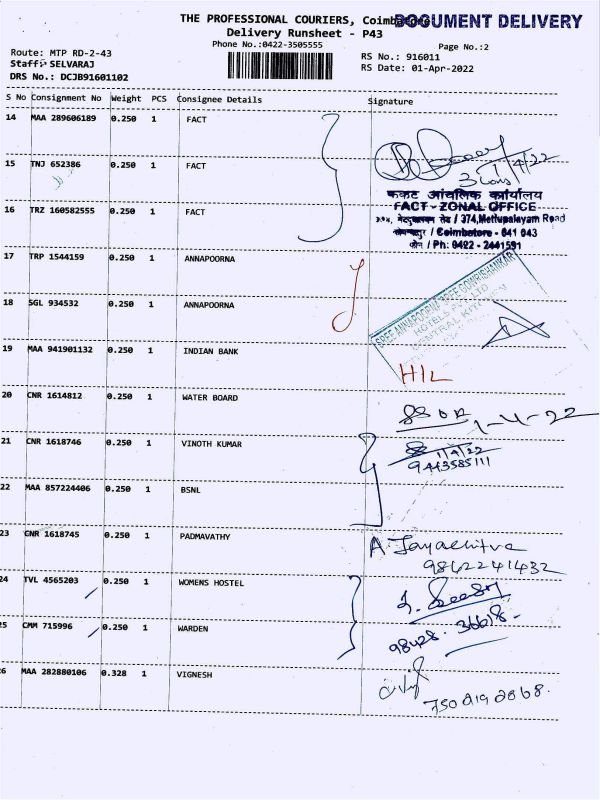 THE PROFESSIONAL COURIERS, Coimbatore
DOCUMENT DELIVERY
Delivery Runsheet - P43
Phone No.:0422-3505555
Page No.:2
Route: MTP RD-2-43
RS No.: 916011
Staff: SELVARAJ
RS Date: 01-Apr-2022
DRS No.: DCJB91601102
S No Consignment No Weight PCS Consignee Details Signature
14 MAA 289606189 0.250 1 FACT
1/4/22
15 TNJ 652386 0.250 1 FACT
3 Cons
फैक्ट आंचलिक कार्यालय
FACT - ZONAL OFFICE
16 TRZ 160582555 0.250 1 FACT
374, Mettupalayam Road
/ Coimbatore - 641 043
फोन / Ph: 0422 - 2441591
17 TRP 1544159 0.250 1 ANNAPOORNA
SREE ANNAPOORNA SREE GOWRISHANKAR
HOTELS PVT LTD
CENTRAL KITCHEN
18 SGL 934532 0.250 1 ANNAPOORNA
19 MAA 941901132 0.250 1 INDIAN BANK
HIL
20 CNR 1614812 0.250 1 WATER BOARD
1-4-22
21 CNR 1618746 0.250 1 VINOTH KUMAR
1/4/22
9443585111
22 MAA 857224406 0.250 1 BSNL
23 CNR 1618745 0.250 1 PADMAVATHY
A Jayachitra
9862241432
24 TVL 4565203 0.250 1 WOMENS HOSTEL
25 CMM 715996 0.250 1 WARDEN
98428 36618
26 MAA 282880106 0.328 1 VIGNESH
7502192868.